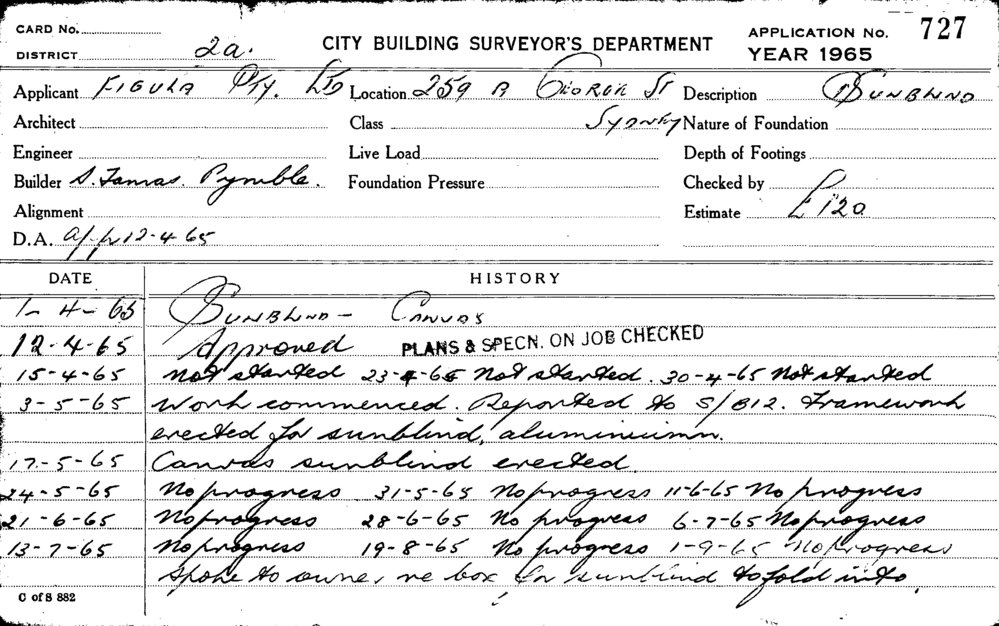 CARD No.
DISTRICT 2a.
CITY BUILDING SURVEYOR'S DEPARTMENT
APPLICATION No. 727
YEAR 1965
Applicant FIGULA PTY. LTD Location 259 B GEORGE ST Description SUNBLIND
Architect Class SYDNEY Nature of Foundation
Engineer Live Load Depth of Footings
Builder S. Tamas. Pymble. Foundation Pressure Checked by
Alignment Estimate £120
D.A. app 12-4-65
DATE HISTORY
1-4-65 SUNBLIND - CANVAS
12-4-65 Approved PLANS & SPECN. ON JOB CHECKED
15-4-65 Not started 23-4-65 Not started. 30-4-65 Not started
3-5-65 Work commenced. Reported to S/B12. Framework
erected for sunblind, aluminiumn.
17-5-65 Canvas sunblind erected.
24-5-65 No progress 31-5-65 No progress 11-6-65 No progress
21-6-65 No progress 28-6-65 No progress 6-7-65 No progress
13-7-65 No progress 19-8-65 No progress 1-9-65 No progress
Spoke to owner re box for sunblind to fold into.
C of S 882